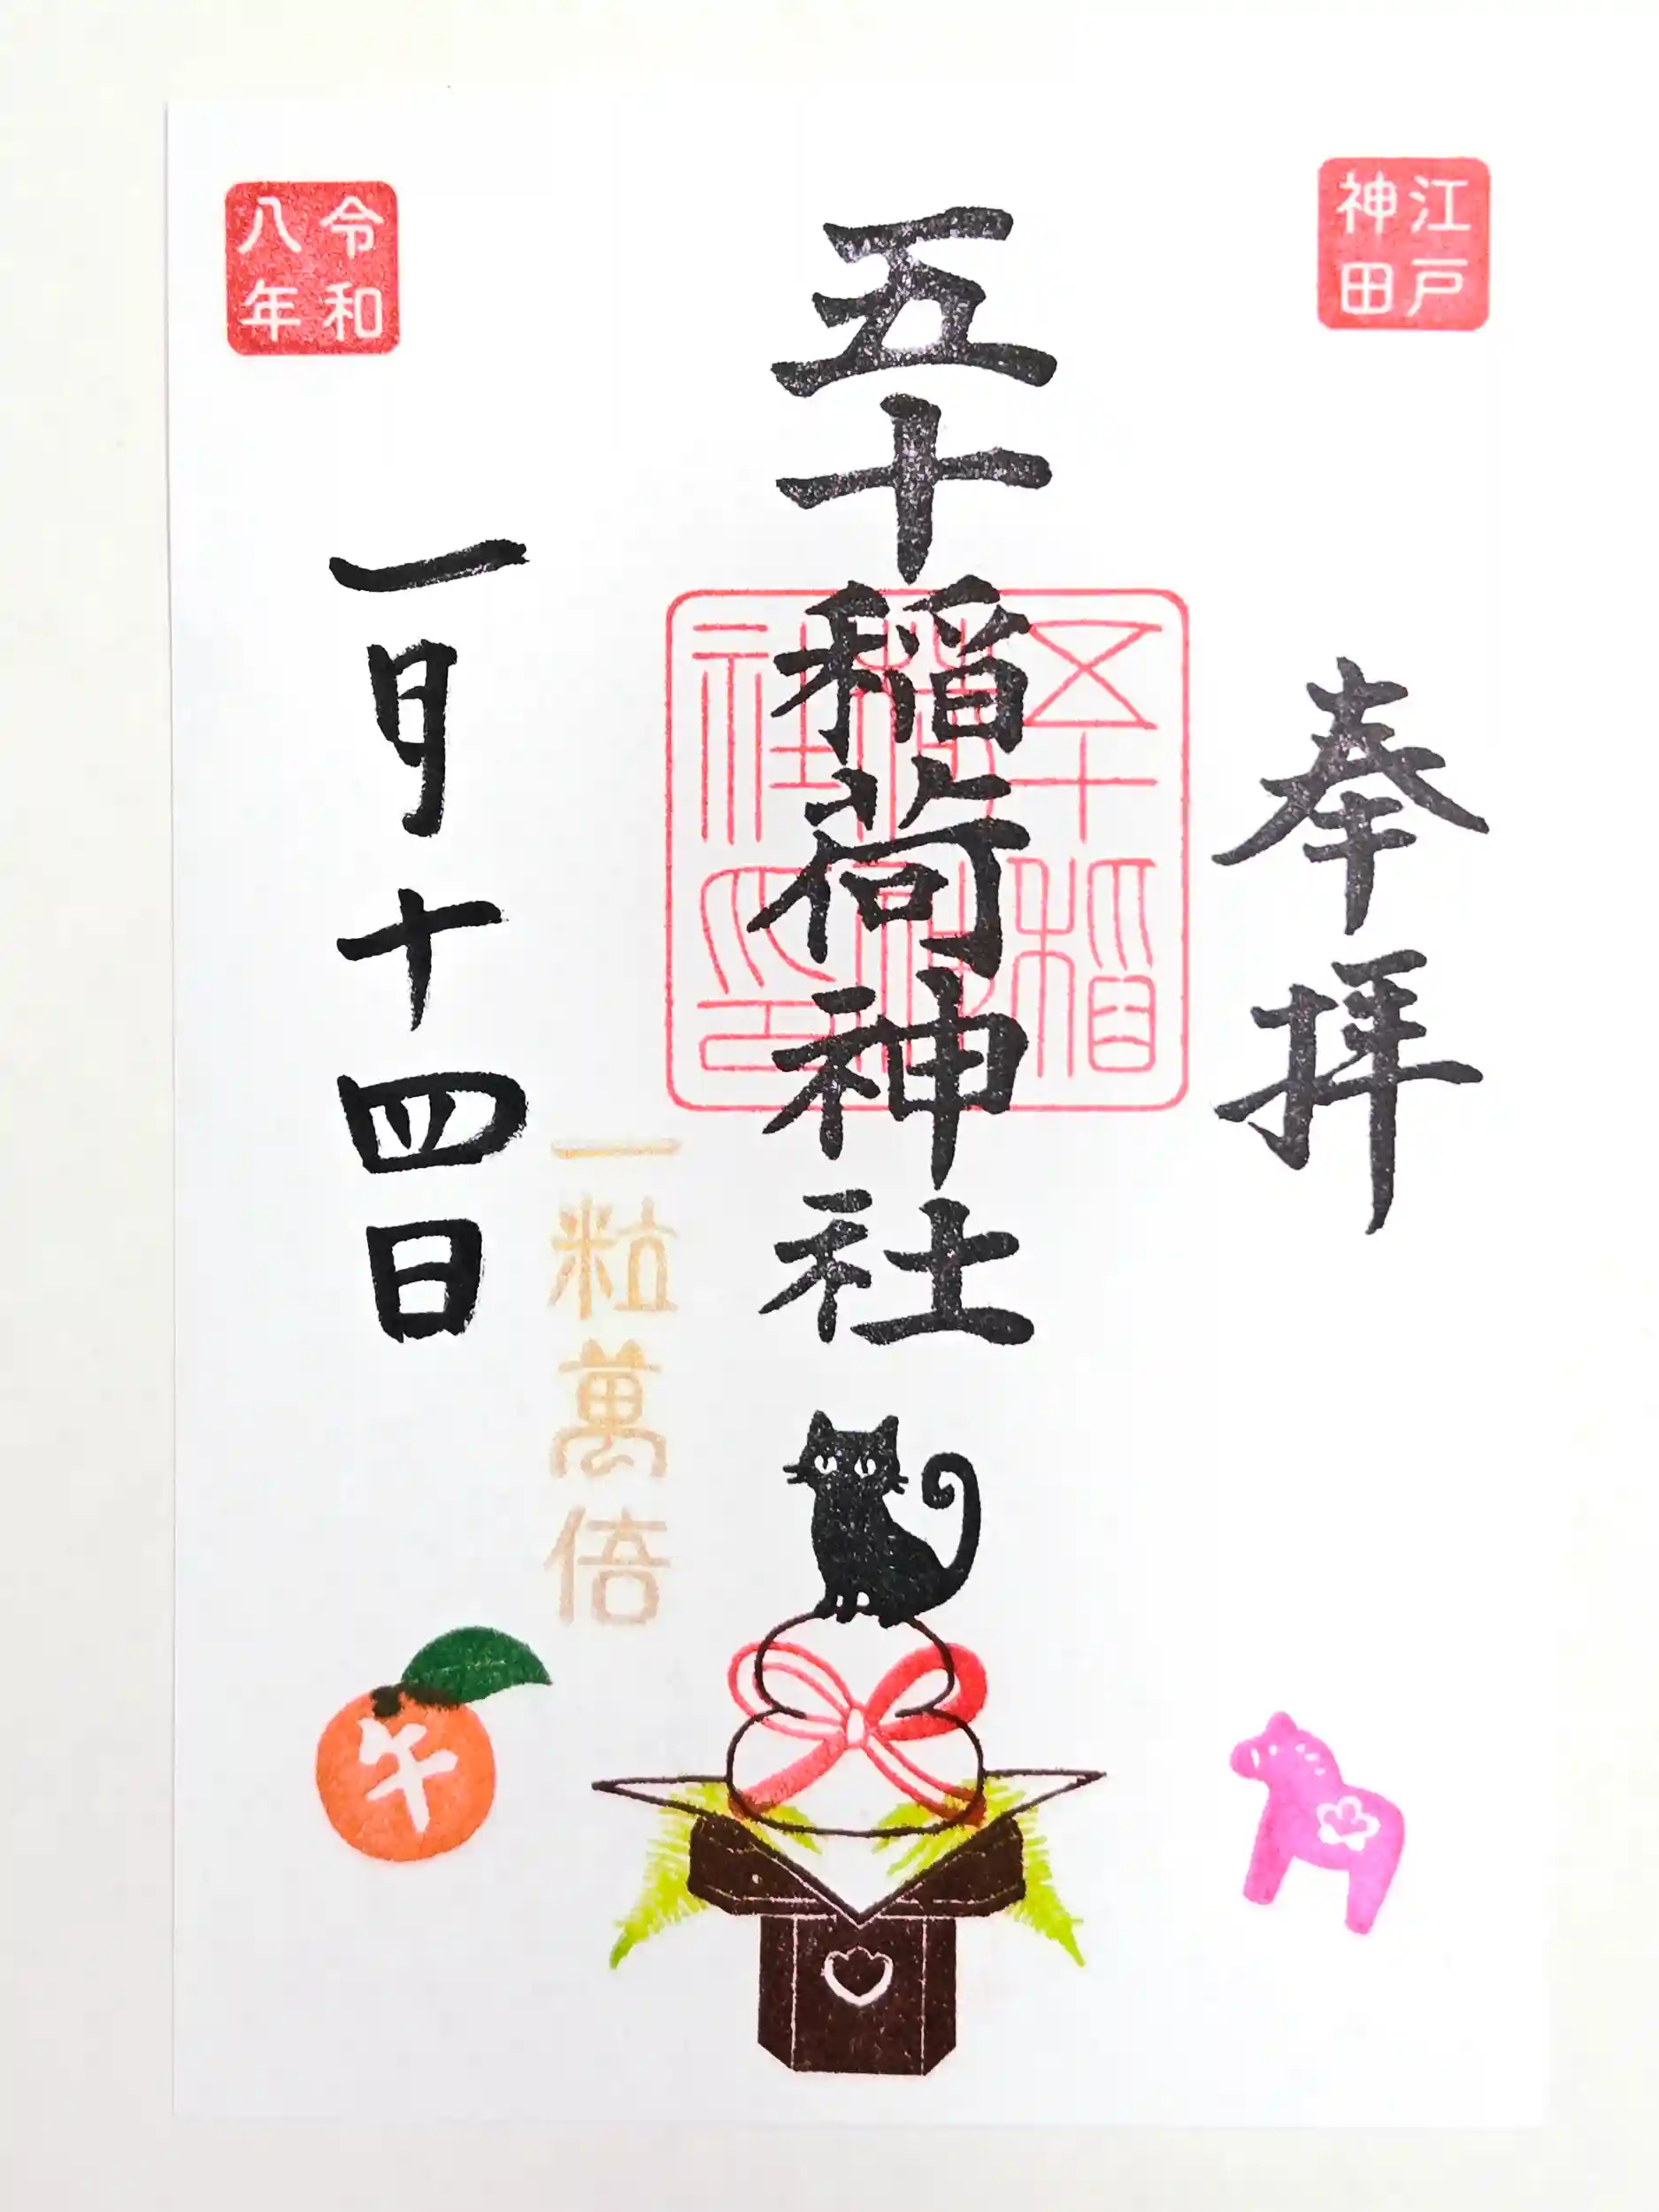 江戸
神田
奉拝
五十稲荷神社
五十稲
荷神
社印
一粒萬倍
令和
八年
一月十四日
午